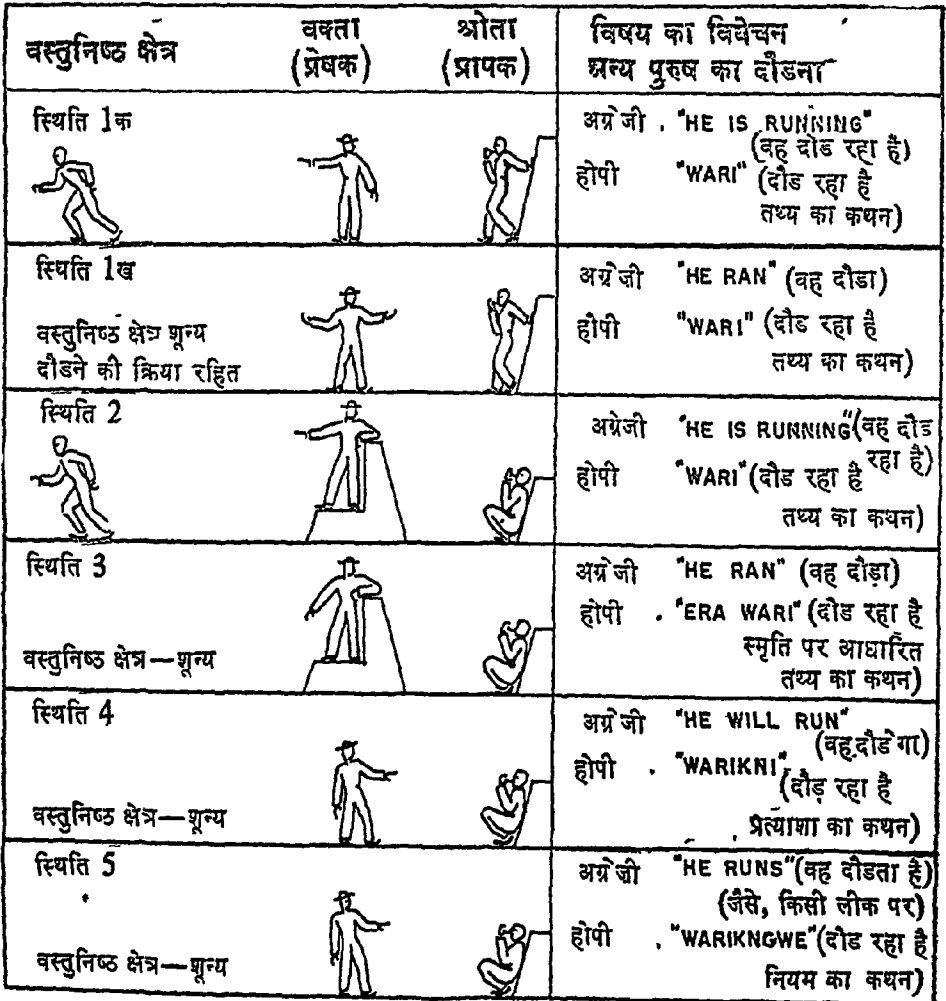 वस्तुनिष्ठ क्षेत्र
वक्ता
(प्रेषक)
श्रोता
(प्रापक)
विषय का विवेचन
अन्य पुरुष का दौडना
स्थिति 1क
अग्रेजी . "HE IS RUNNING"
(वह दौड रहा है)
होपी "WARI" (दौड रहा है
तथ्य का कथन)
स्थिति 1ख
वस्तुनिष्ठ क्षेत्र शून्य
दौडने की क्रिया रहित
अग्रेजी "HE RAN" (वह दौडा)
होपी "WARI" (दौड रहा है
तथ्य का कथन)
स्थिति 2
अग्रेजी "HE IS RUNNING" (वह दौड
रहा है)
होपी "WARI" (दौड रहा है
तथ्य का कथन)
स्थिति 3
वस्तुनिष्ठ क्षेत्र—शून्य
अग्रेजी "HE RAN" (वह दौड़ा)
होपी . "ERA WARI" (दौड रहा है
स्मृति पर आधारित
तथ्य का कथन)
स्थिति 4
वस्तुनिष्ठ क्षेत्र—शून्य
अग्रेजी "HE WILL RUN"
(वह दौडेगा)
होपी . "WARIKNI"
(दौड़ रहा है
प्रत्याशा का कथन)
स्थिति 5
वस्तुनिष्ठ क्षेत्र—शून्य
अग्रेजी "HE RUNS" (वह दौडता है)
(जैसे, किसी लीक पर)
होपी . "WARIKNGWE" (दौड रहा है
नियम का कथन)